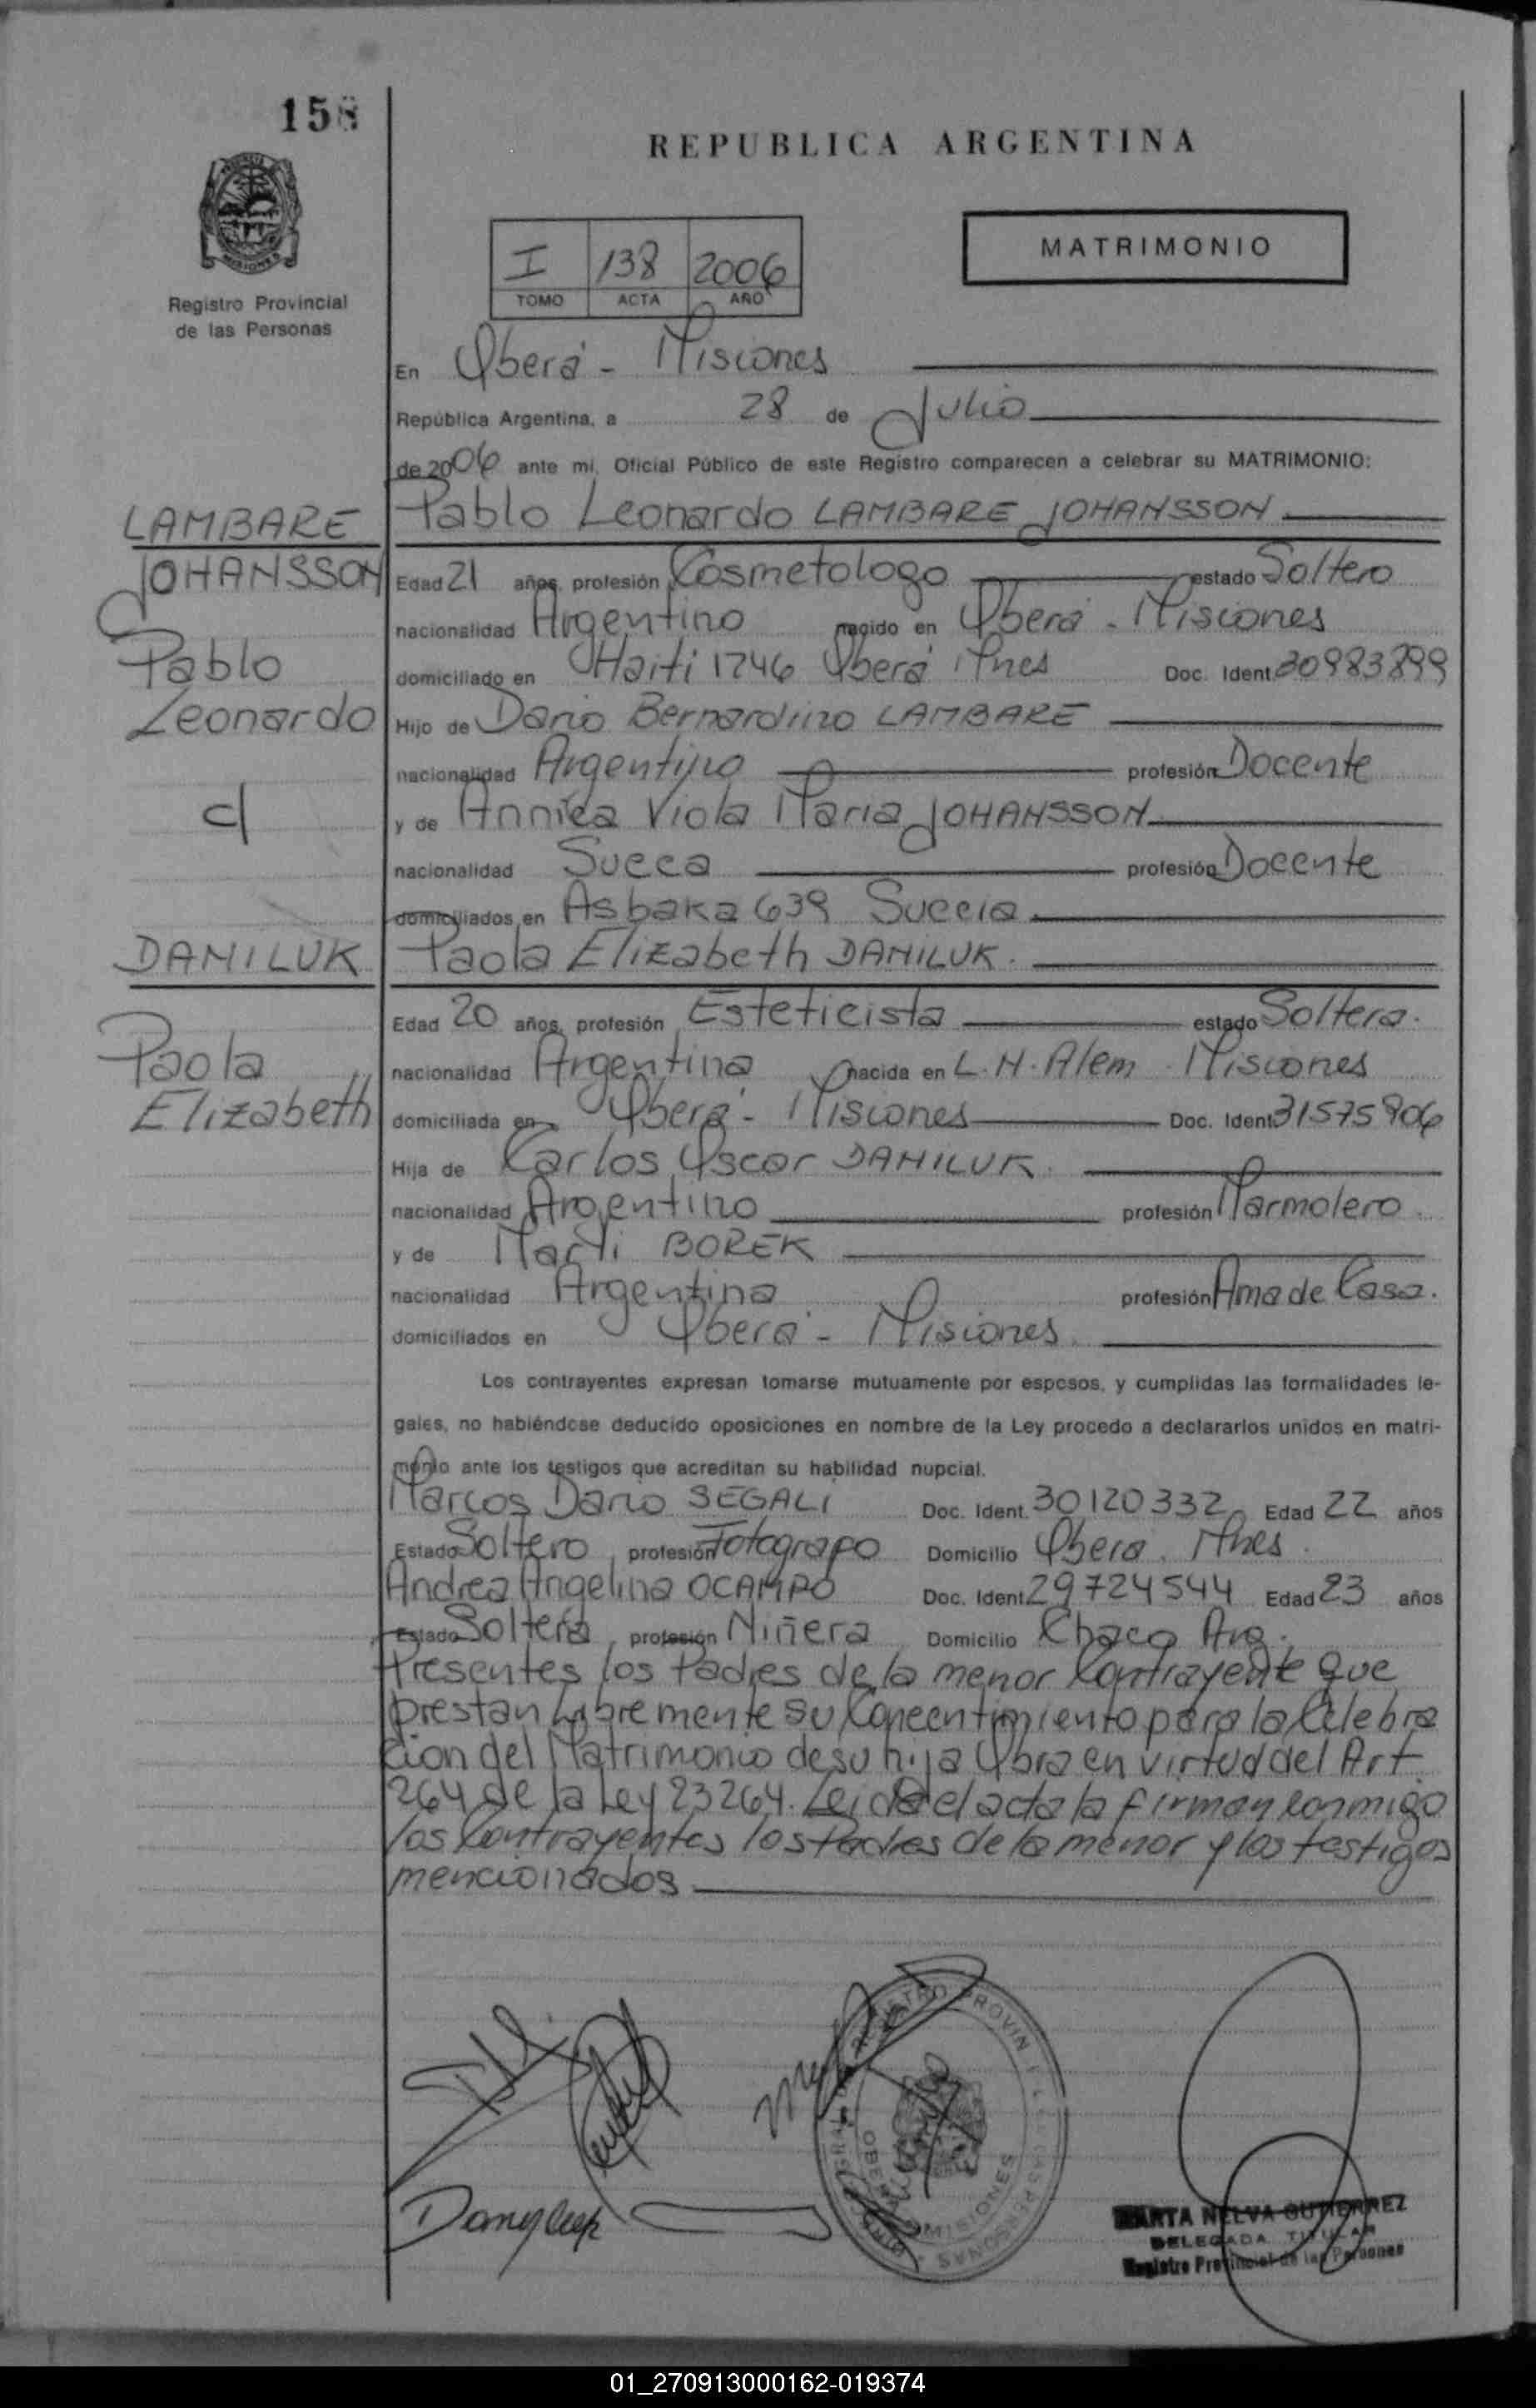 158
REPUBLICA ARGENTINA
MISIONES
Registro Provincial
de las Personas
I 138 2006
TOMO ACTA AÑO
MATRIMONIO
En Oberá - Misiones
República Argentina, a 28 de Julio
de 2006 ante mi, Oficial Público de este Registro comparecen a celebrar su MATRIMONIO:
LAMBARE
JOHANSSON
Pablo
Leonardo
c/
DANILUK
Paola
Elizabeth
Pablo Leonardo LAMBARE JOHANSSON
Edad 21 años, profesión Cosmetologo estado Soltero
nacionalidad Argentino nacido en Oberá - Misiones
domiciliado en Haiti 1746 Oberá Mnes Doc. Ident. 30983899
Hijo de Dario Bernardino LAMBARE
nacionalidad Argentino profesión Docente
y de Annica Viola Maria JOHANSSON
nacionalidad Sueca profesión Docente
domiciliados en Asbaka 639 Suecia
Paola Elizabeth DANILUK.
Edad 20 años, profesión Esteticista estado Soltera.
nacionalidad Argentina nacida en L.N.Alem - Misiones
domiciliada en Oberá - Misiones Doc. Ident. 31575906
Hija de Carlos Oscar DANILUK.
nacionalidad Argentino profesión Marmolero
y de Marli BOREK
nacionalidad Argentina profesión Ama de Casa.
domiciliados en Oberá - Misiones
Los contrayentes expresan tomarse mutuamente por esposos, y cumplidas las formalidades le-
gales, no habiéndose deducido oposiciones en nombre de la Ley procedo a declararlos unidos en matri-
monio ante los testigos que acreditan su habilidad nupcial.
Marcos Dario SEGALI Doc. Ident. 30120332 Edad 22 años
Estado Soltero, profesión Fotografo Domicilio Oberá. Mnes.
Andrea Angelina OCAMPO Doc. Ident. 29724544 Edad 23 años
Estado Soltera, profesión Niñera Domicilio Chaco Arg.
Presentes los Padres de la menor Contrayente que
prestan Libremente su Concentimiento para la Celebra
cion del Matrimonio de su hija Obra en virtud del Art
264 de la Ley 23264. Leida el acta la firman conmigo
los Contrayentes los Padres de la menor y los testigos
mencionados
OBERA MISIONES
MARTA NELVA GUTIERREZ
DELEGADA TITULAR
Registro Provincial de las Personas
01_270913000162-019374